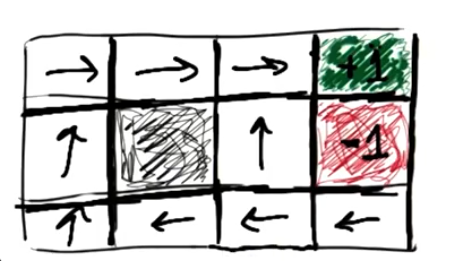 → → → +1
↑ ↑ -1
↑ ← ← ←